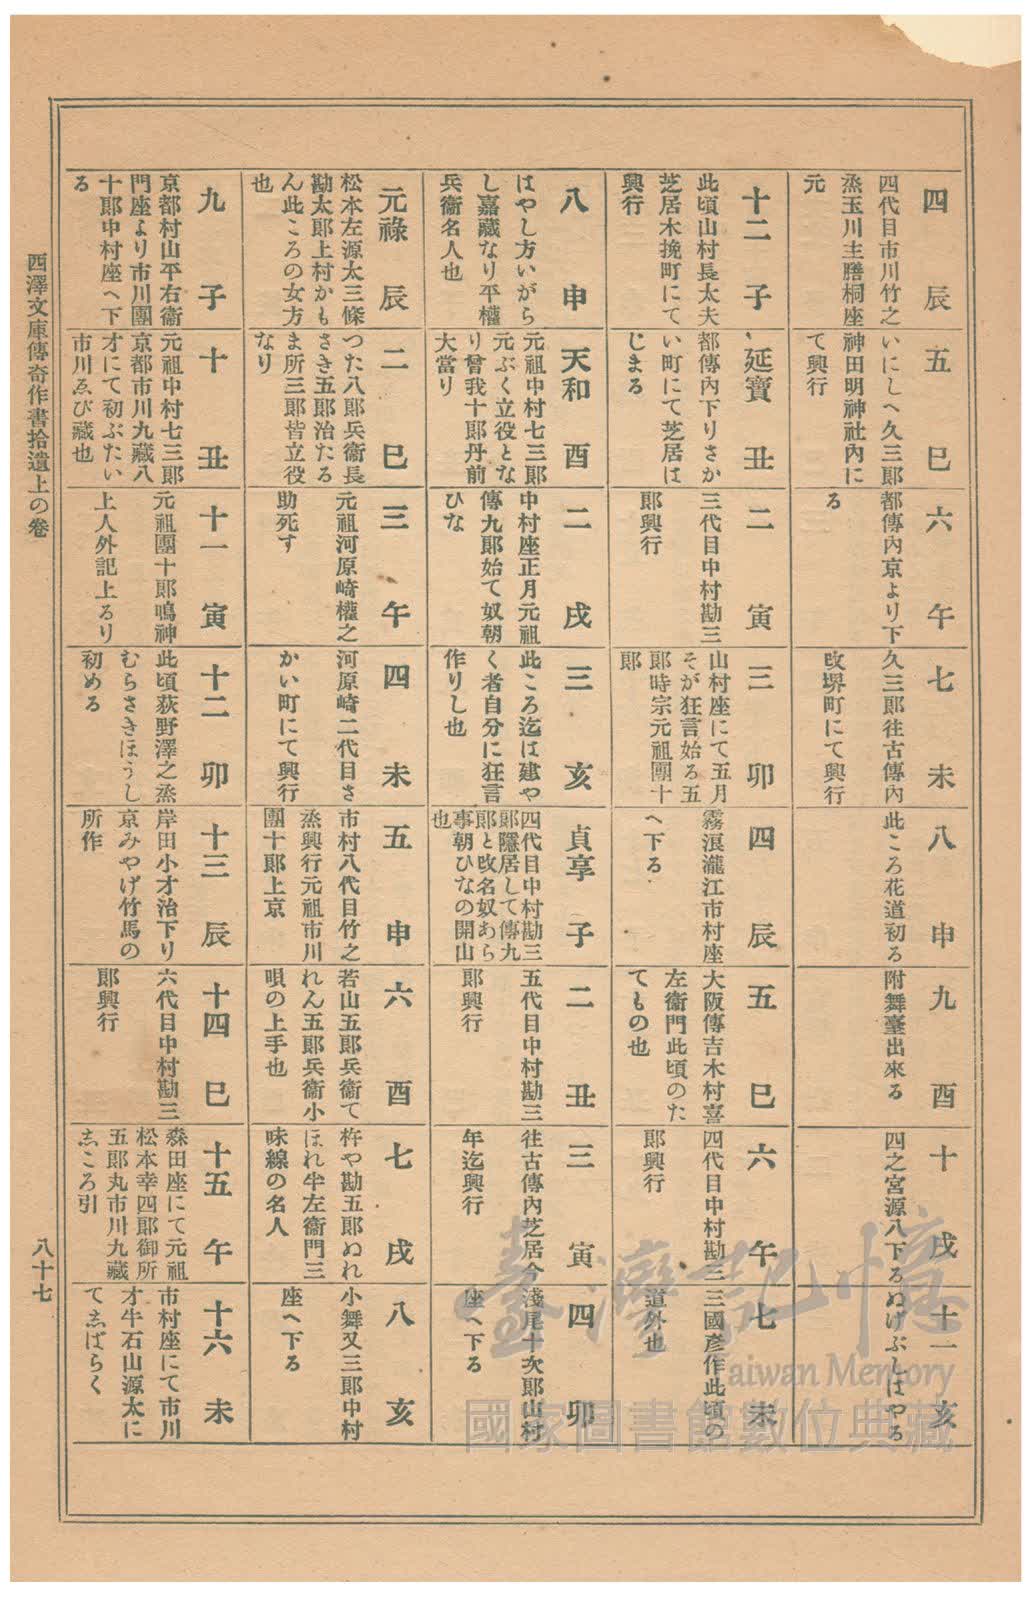 四辰
四代目市川竹之
烝玉川主膳桐座
元
五巳
いにしへ久三郞
神田明神社內に
て興行
六午
都傳內京より下
る
七未
久三郞往古傳內
改堺町にて興行
八申
此ころ花道初る
九酉
附舞臺出來る
十戌
四之宮源八下る
十一亥
ぬけぶしはやる
十二子
此頃山村長太夫
芝居木挽町にて
興行
延寶丑
都傳內下りさか
い町にて芝居は
じまる
二寅
三代目中村勘三
郞興行
三卯
山村座にて五月
そが狂言始る五
郞時宗元祖團十
郞
四辰
霧浪瀧江市村座
へ下る
五巳
大阪傳吉木村喜
左衞門此頃のた
てもの也
六午
四代目中村勘三
郞興行
七未
三國彥作此頃の
道外也
八申
はやし方いがら
し嘉藏なり平權
兵衞名人也
天和酉
元祖中村七三郞
元ぶく立役とな
り曾我十郞丹前
大當り
二戌
中村座正月元祖
傳九郞始て奴朝
ひな
三亥
此ころ迄は建や
く者自分に狂言
作りし也
貞享子
四代目中村勘三
郞隱居して傳九
郞と改名奴あら
事朝ひなの開山
也
二丑
五代目中村勘三
郞興行
三寅
往古傳內芝居今
年迄興行
四卯
淺尾十次郞山村
座へ下る
元祿辰
松本左源太三條
勘太郞上村かも
ん此ころの女方
也
二巳
つた八郞兵衞長
さき五郞治たる
ま所三郞皆立役
なり
三午
元祖河原崎權之
助死す
四未
河原崎二代目さ
かい町にて興行
五申
市村八代目竹之
烝興行元祖市川
團十郞上京
六酉
若山五郞兵衞て
れん五郞兵衞小
唄の上手也
七戌
杵や勘五郞ぬれ
ほれ半左衞門三
味線の名人
八亥
小舞又三郞中村
座へ下る
九子
京都村山平右衞
門座より市川團
十郞中村座へ下
る
十丑
元祖中村七三郞
京都市川九藏八
才にて初ぶたい
市川ゑび藏也
十一寅
元祖團十郞鳴神
上人外記上るり
十二卯
此頃荻野澤之烝
むらさきほうし
初める
十三辰
岸田小才治下り
京みやげ竹馬の
所作
十四巳
六代目中村勘三
郞興行
十五午
森田座にて元祖
松本幸四郞御所
五郞丸市川九藏
志ころ引
十六未
市村座にて市川
才牛石山源太に
て志ばらく
西澤文庫傳奇作書拾遺上の卷
八十七
臺灣記憶
Taiwan Memory
國家圖書館數位典藏